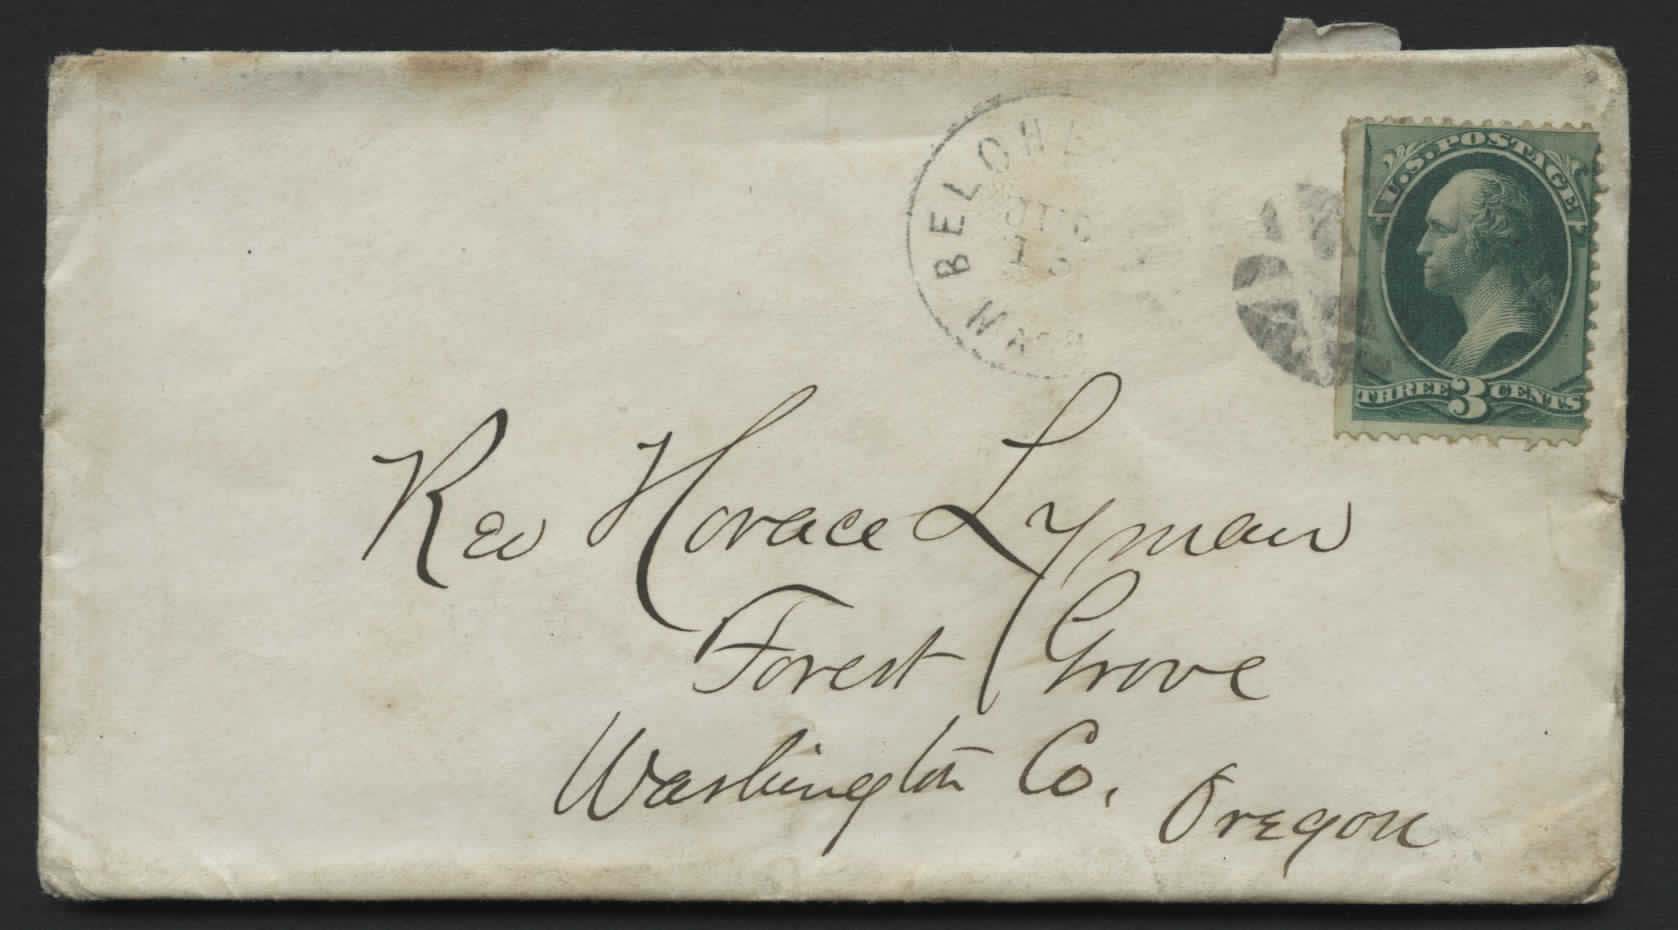 BELOW
U.S. POSTAGE
THREE 3 CENTS
Rev Horace Lyman
Forest Grove
Washington Co.
Oregon